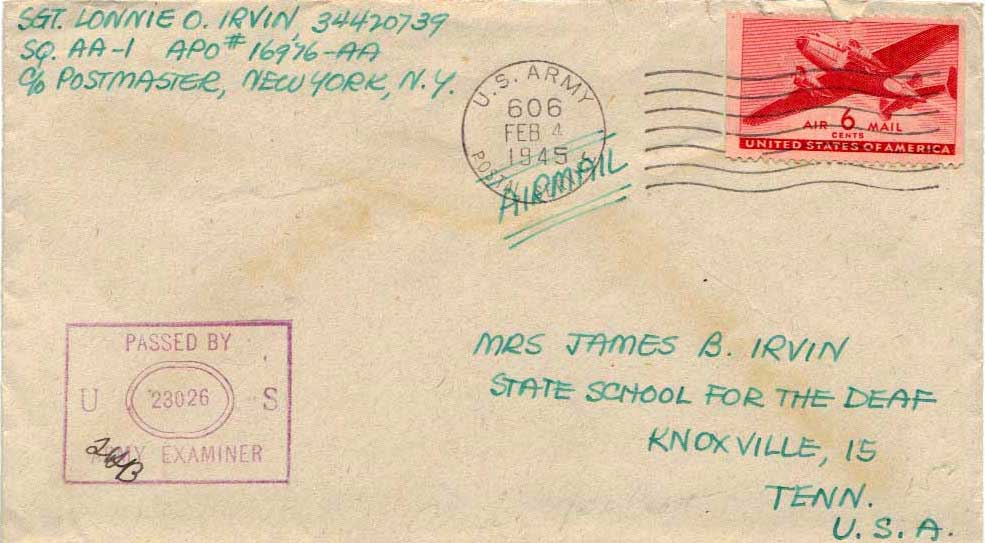 SGT. LONNIE O. IRVIN, 34420739
SQ. AA-1 APO# 16976-AA
c/o POSTMASTER, NEW YORK, N.Y.
U.S. ARMY
606
FEB 4
1945
POSTAL
AIRMAIL
AIR 6 MAIL
CENTS
UNITED STATES OF AMERICA
PASSED BY
U 23026 S
ARMY EXAMINER
MRS JAMES B. IRVIN
STATE SCHOOL FOR THE DEAF
KNOXVILLE, 15
TENN.
U.S.A.